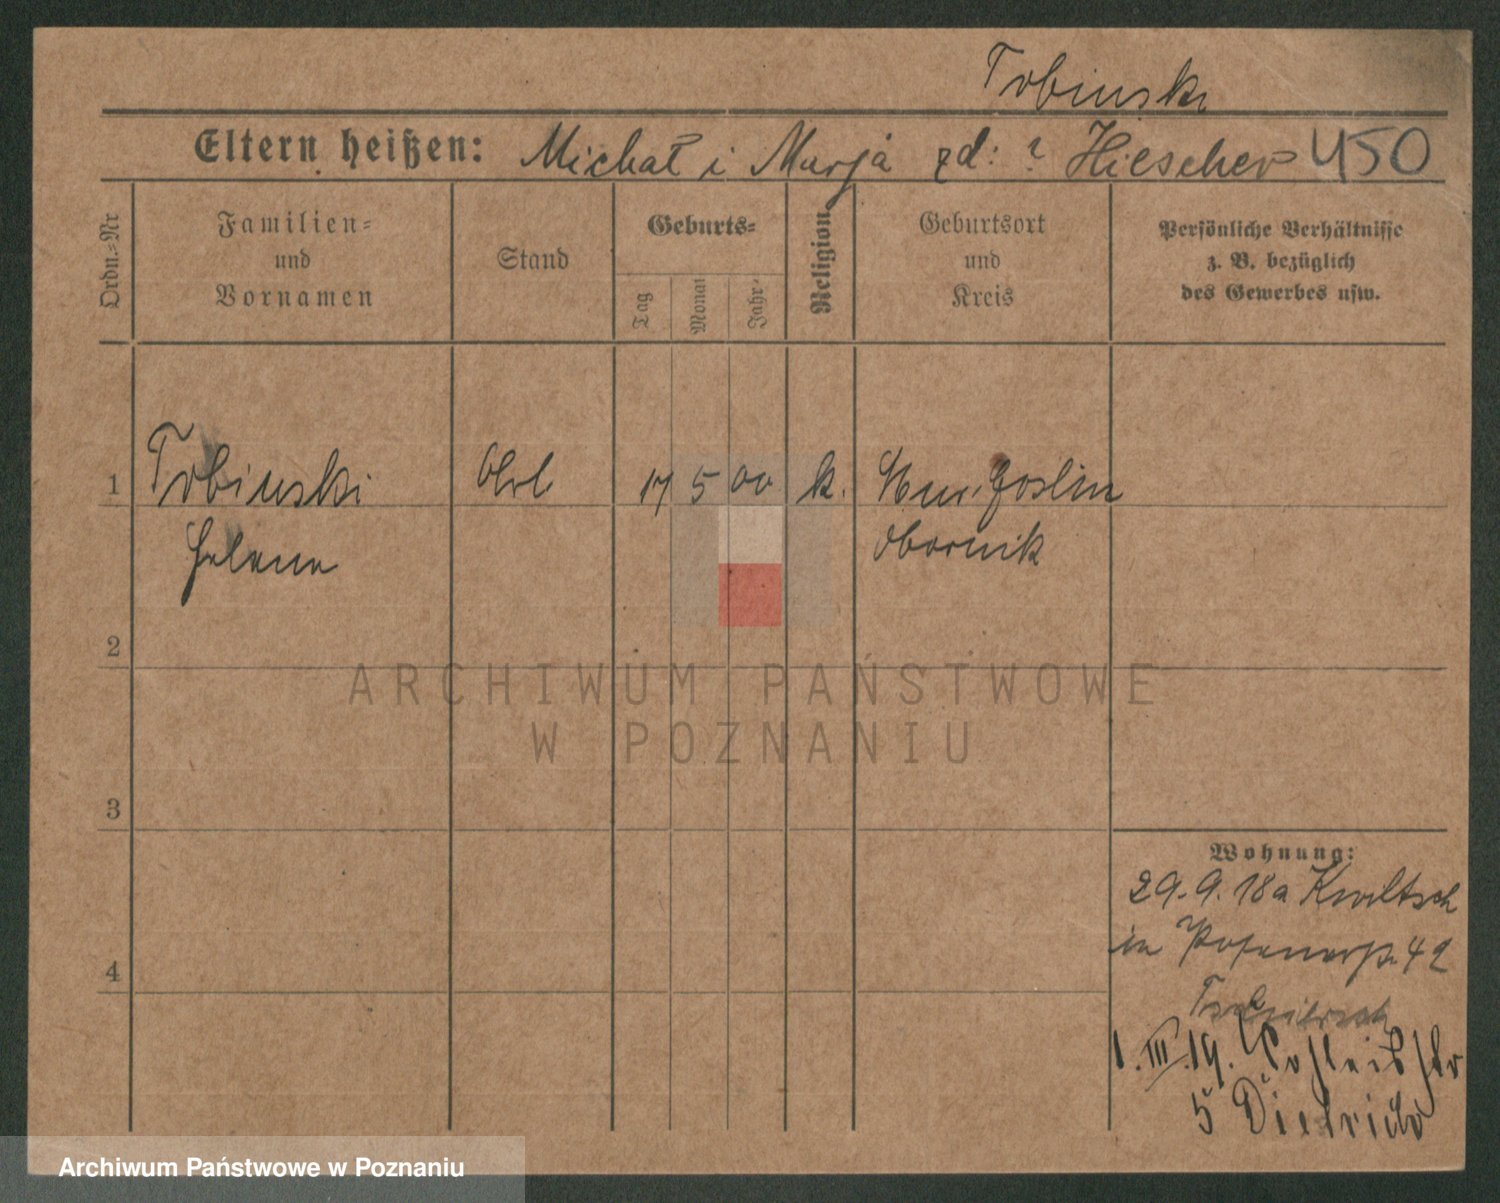 Tobinski
Eltern heißen: Michał i Marja zd: ? Hilscher 450
Ordn.=Nr
Familien=
und
Vornamen
Stand
Geburts=
Tag
Monat
Jahr
Religion
Geburtsort
und
Kreis
Persönliche Verhältnisse
z. B. bezüglich
des Gewerbes usw.
1 Tobinski 17 5 00 k. Mur. Goslin
Helene Obornik
2
3
4
Wohnung:
29.9.18 a Kwiltsch
in Posenerstr 42
1. III. 19.
5 Dietrich
ARCHIWUM PAŃSTWOWE
W POZNANIU
Archiwum Państwowe w Poznaniu